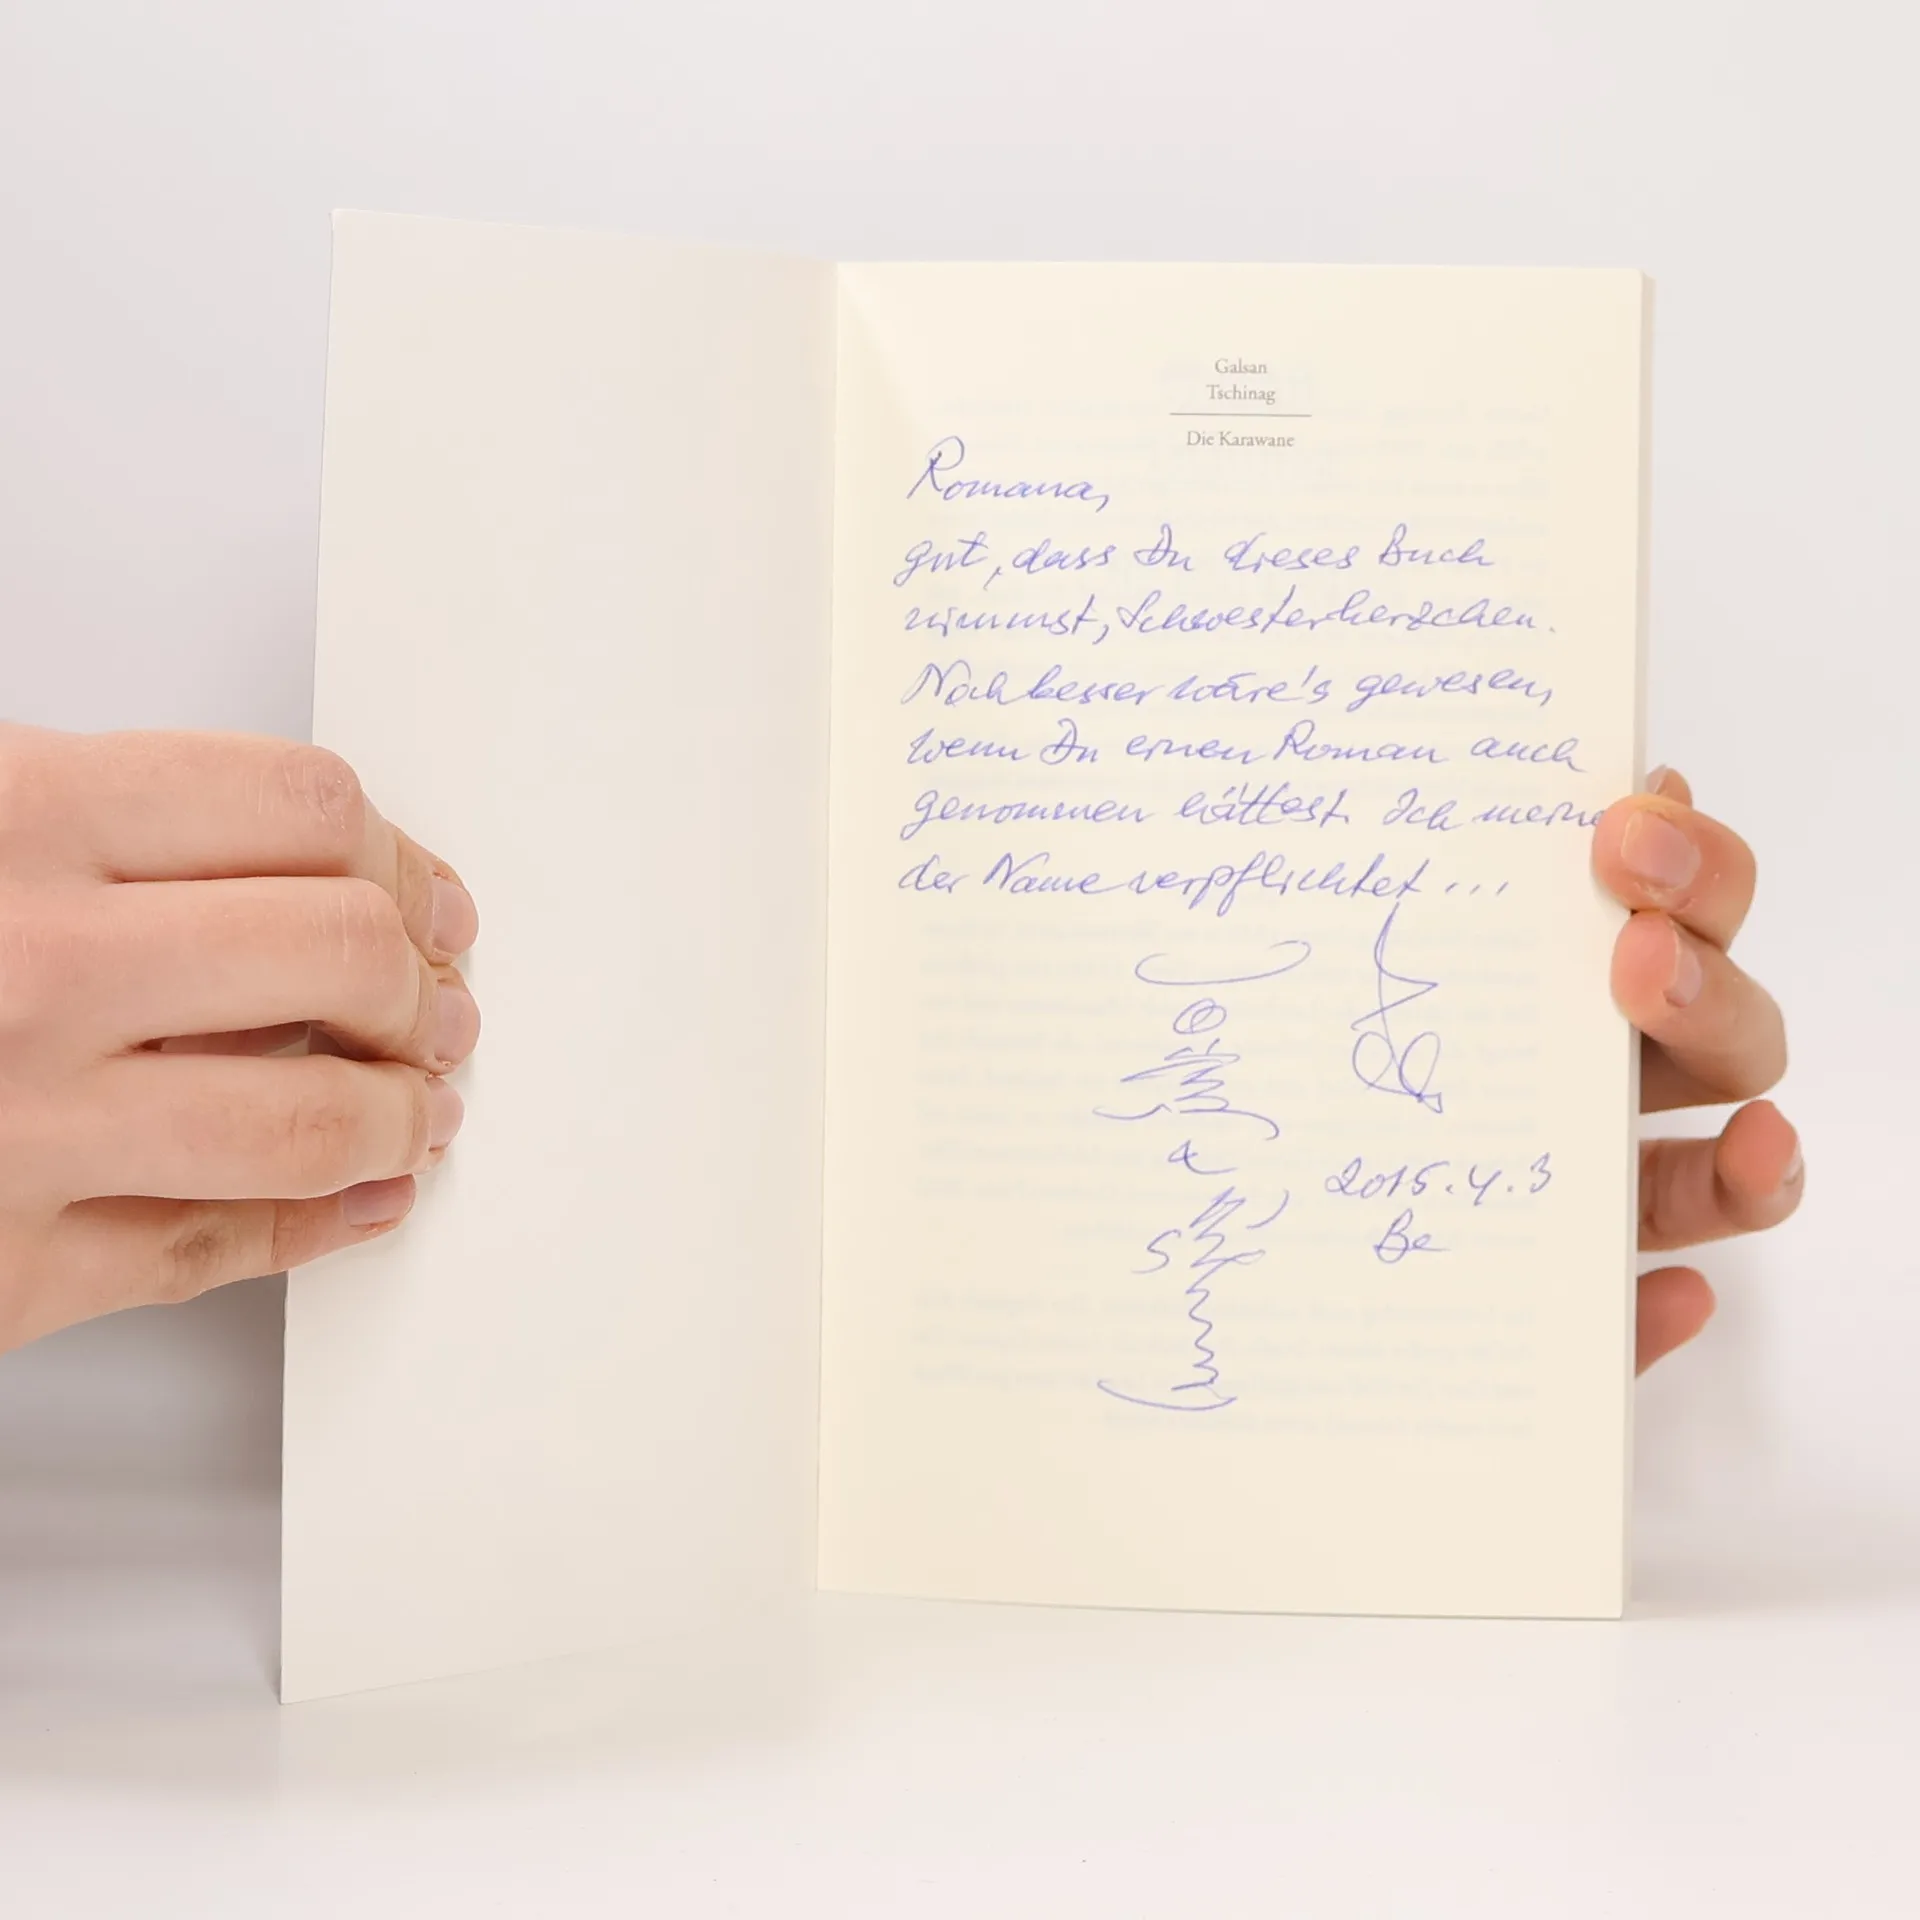 Galsan
Tschinag
Die Karawane
Romana,
gut, dass Du dieses Buch
nimmst, Schwesterherzchen.
Noch besser wäre's gewesen,
wenn Du einen Roman auch
genommen hättest. Ich meine
der Name verpflichtet ...
2015.4.3
Be